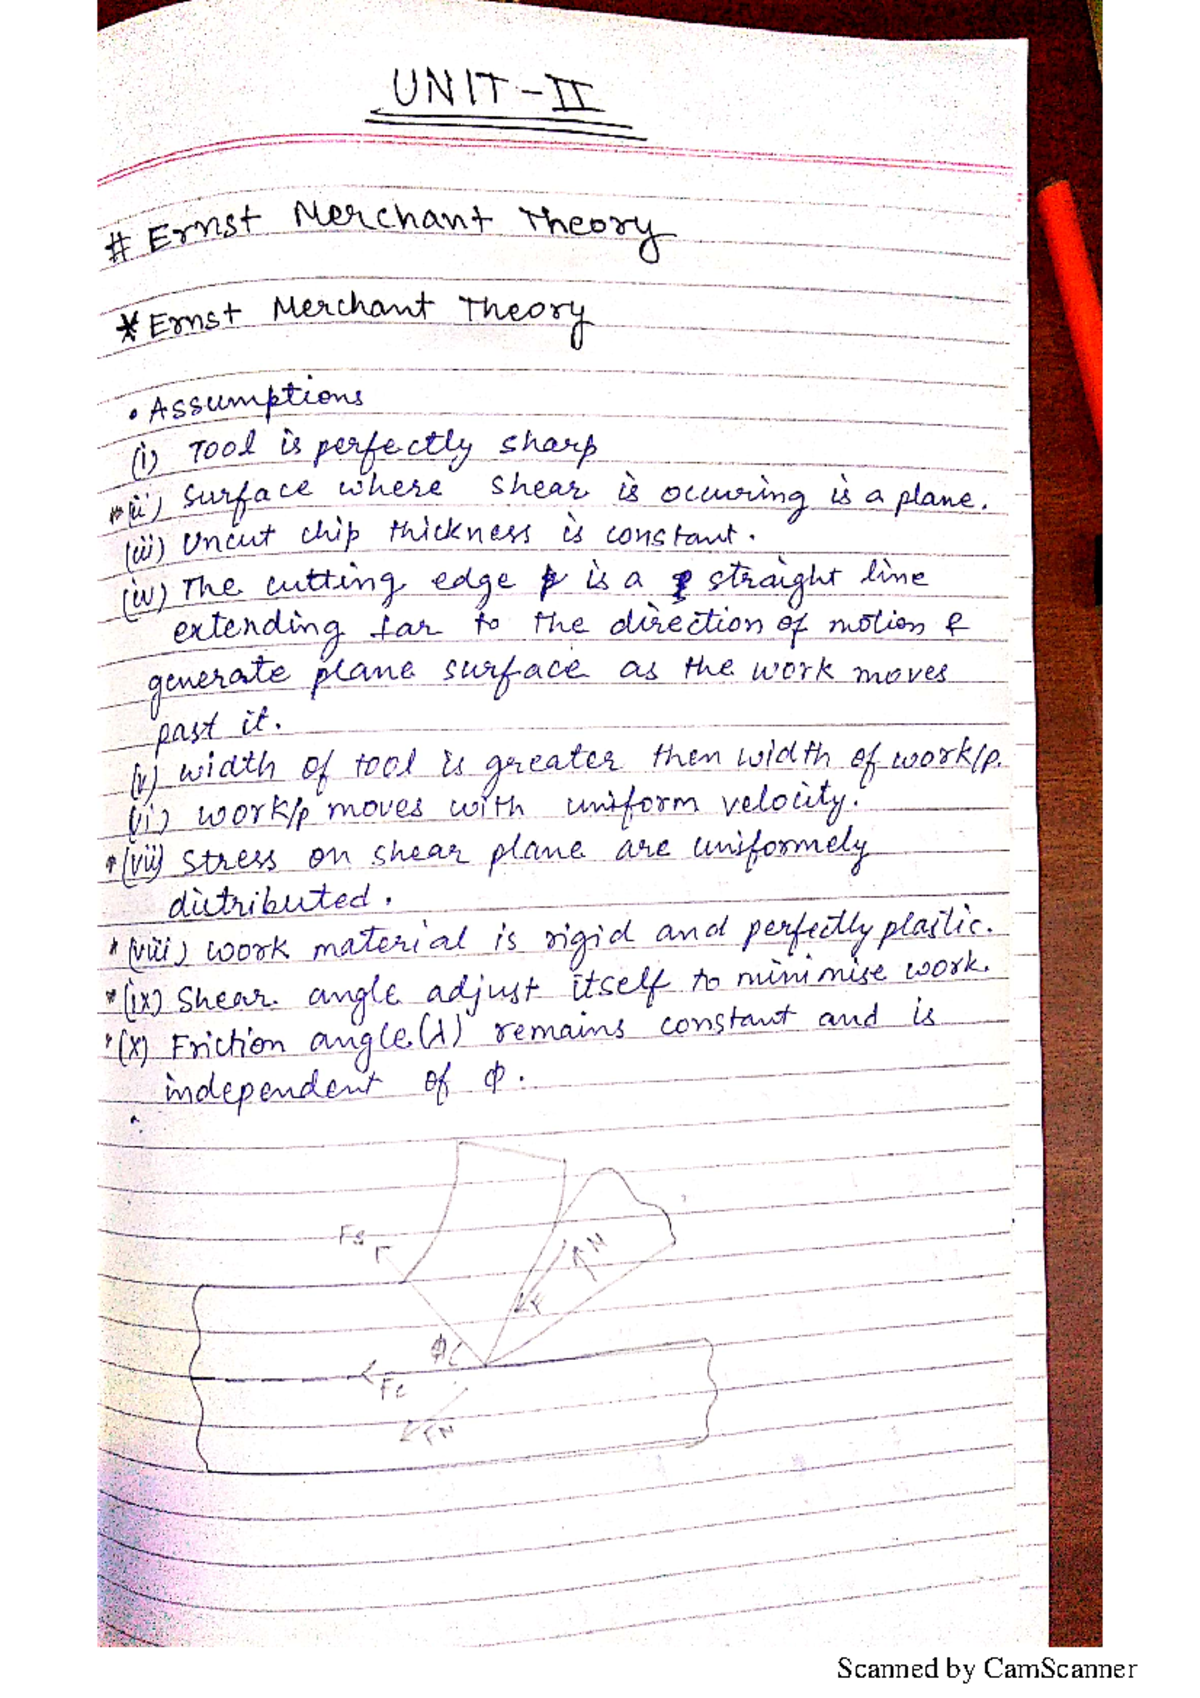 UNIT-II
# Ernst Merchant Theory
* Ernst Merchant Theory
• Assumptions
(i) Tool is perfectly sharp
(ii) Surface where shear is occuring is a plane.
(iii) Uncut chip thickness is constant.
(iv) The cutting edge is a straight line
extending far to the direction of motion &
generate plane surface as the work moves
past it.
(v) width of tool is greater then width of work/p.
(vi) work/p moves with uniform velocity.
(vii) Stress on shear plane are uniformely
distributed.
(viii) work material is rigid and perfectly plastic.
(ix) Shear angle adjust itself to minimise work.
(x) Friction angle (λ) remains constant and is
independent of φ.
Fs
N
F
φ
Fc
FN
Scanned by CamScanner